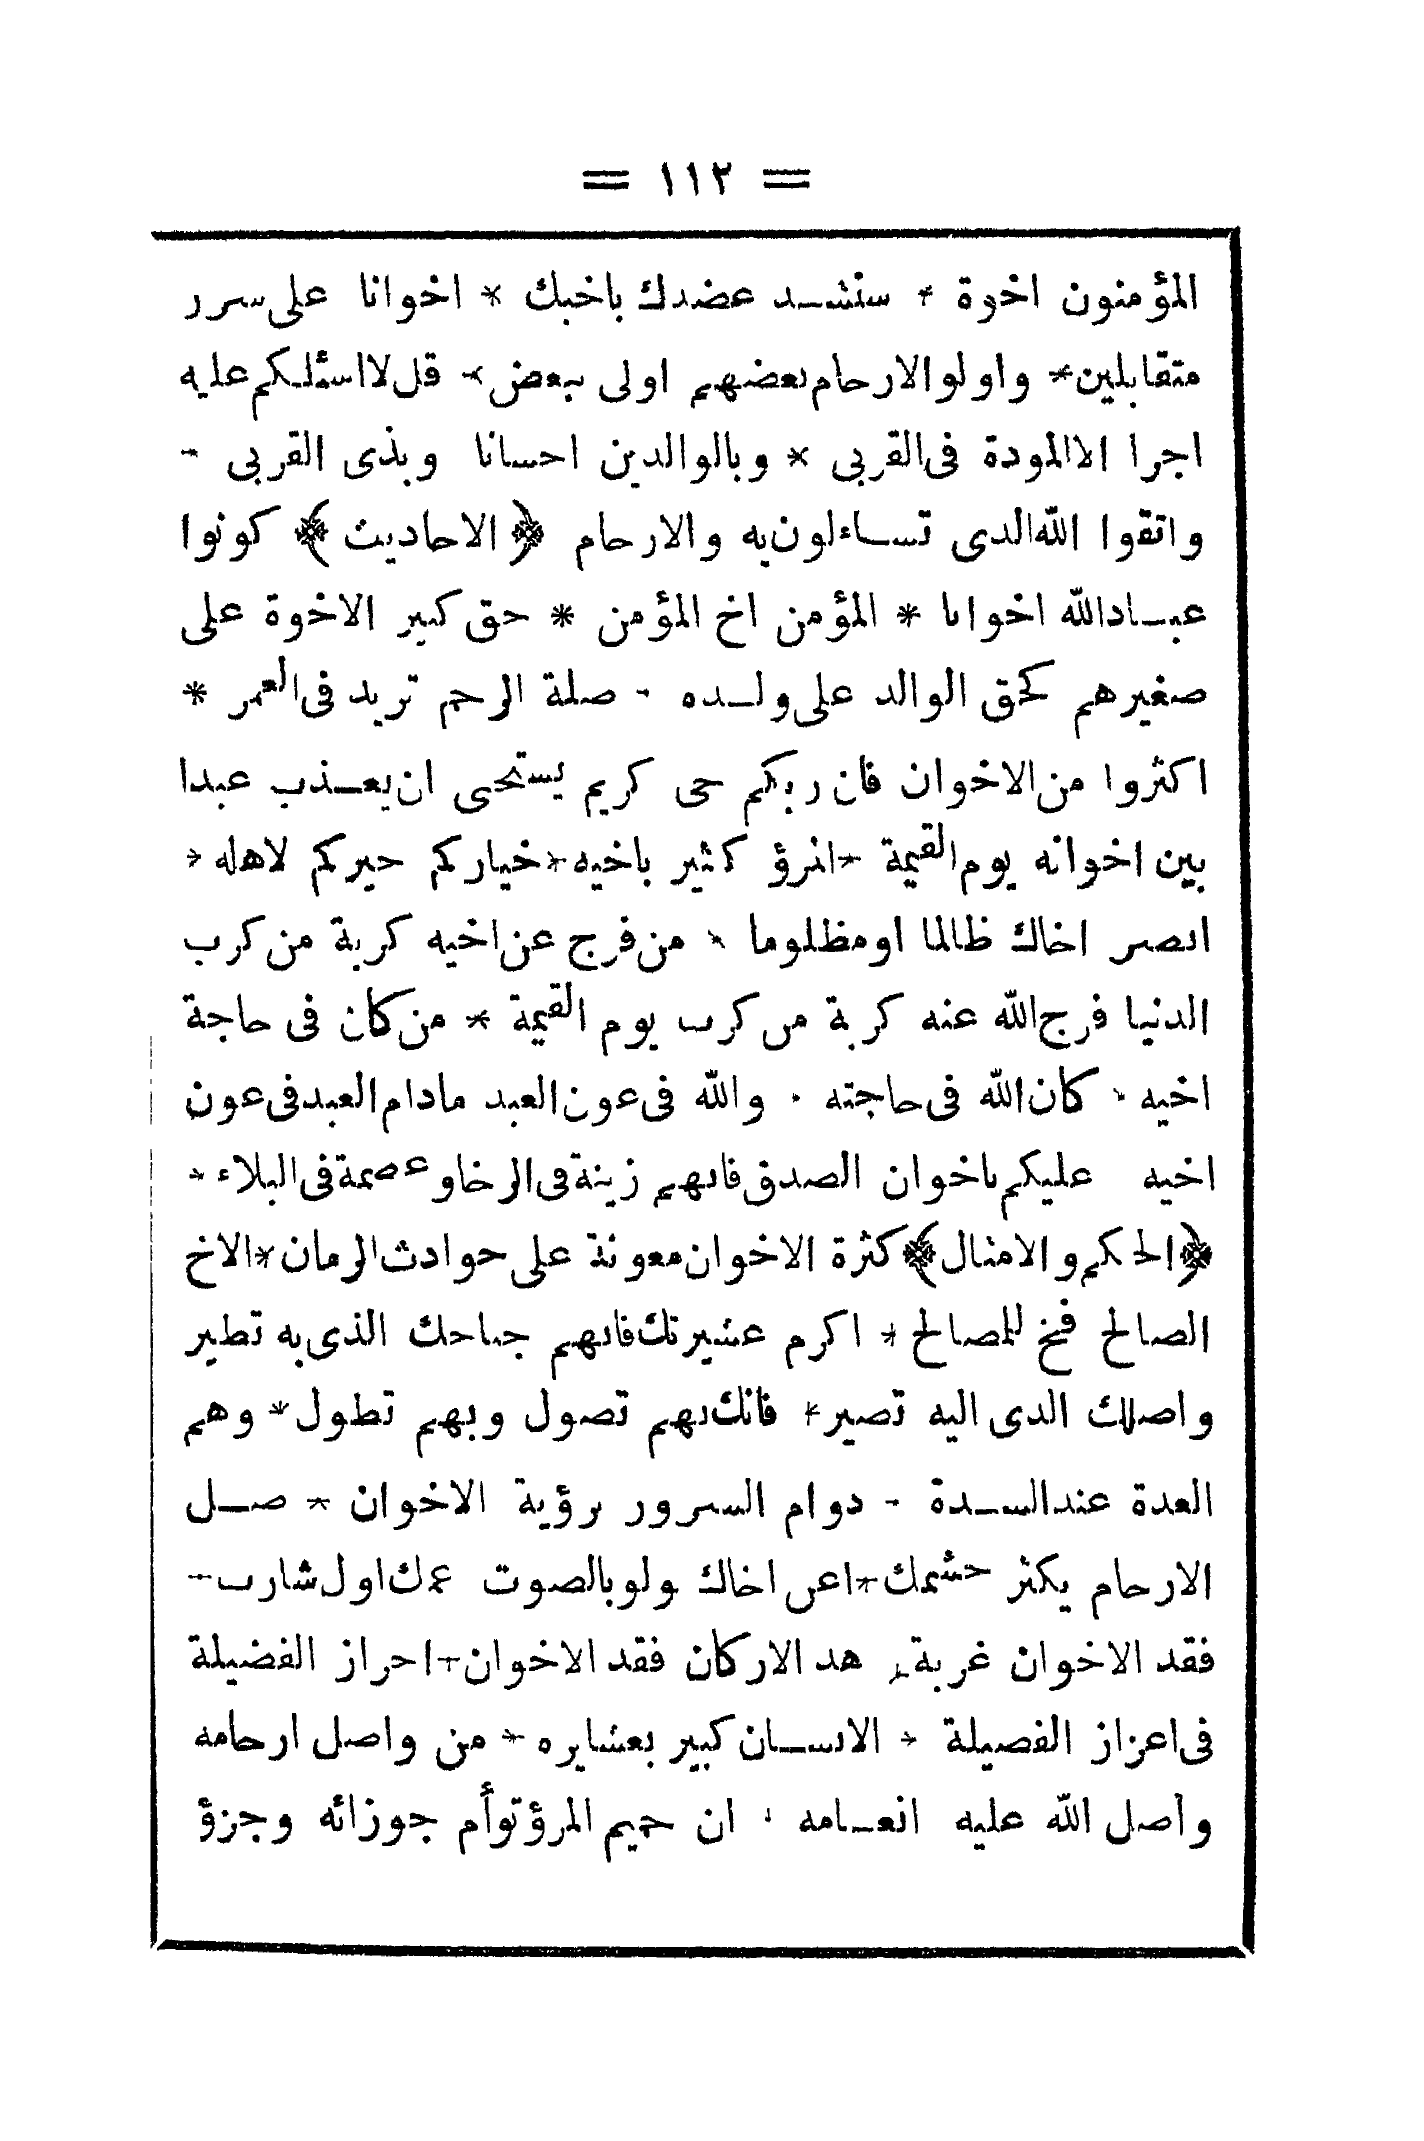 = ١١٢ =
المؤمنون اخوة * سنشد عضدك باخيك * اخوانا على سرر
متقابلين * واولو الارحام بعضهم اولى ببعض * قل لا اسئلكم عليه
اجرا الا المودة فى القربى * وبالوالدين احسانا وبذى القربى *
واتقوا الله الذى تساءلون به والارحام ﴿الاحاديث﴾ كونوا
عباد الله اخوانا * المؤمن اخ المؤمن * حق كبير الاخوة على
صغيرهم كحق الوالد على ولده * صلة الرحم تزيد فى العمر *
اكثروا من الاخوان فان ربكم حى كريم يستحيى ان يعذب عبدا
بين اخوانه يوم القيمة * المرؤ كثير باخيه * خياركم خيركم لاهله *
انصر اخاك ظالما او مظلوما * من فرج عن اخيه كربة من كرب
الدنيا فرج الله عنه كربة من كرب يوم القيمة * من كان فى حاجة
اخيه * كان الله فى حاجته * والله فى عون العبد مادام العبد فى عون
اخيه عليكم باخوان الصدق فانهم زينة فى الرخا وعصمة فى البلاء *
﴿الحكم والامثال﴾ كثرة الاخوان معونة على حوادث الزمان * الاخ
الصالح فخ للمصالح * اكرم عشيرتك فانهم جناحك الذى به تطير
واصلك الذى اليه تصير * فانك بهم تصول وبهم تطول * وهم
العدة عند الشدة * دوام السرور برؤية الاخوان * صل
الارحام يكثر حشمك * اعن اخاك ولو بالصوت عمك اول شارب *
فقد الاخوان غربة * هد الاركان فقد الاخوان * احراز الفضيلة
فى اعزاز الفصيلة * الانسان كبير بعشايره * من واصل ارحامه
واصل الله عليه انعامه * ان حميم المرؤ توأم جوزائه وجزؤ